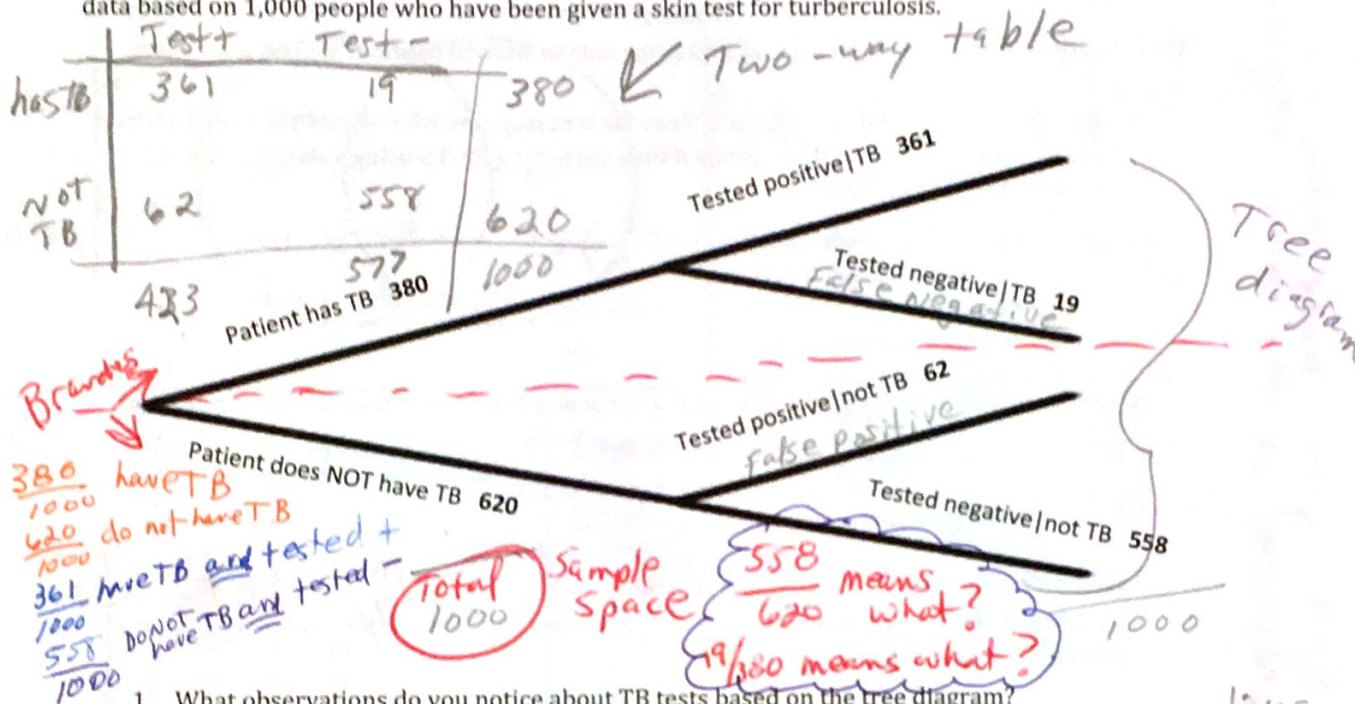 data based on 1,000 people who have been given a skin test for turberculosis.
Test+ Test-
has TB 361 19 380
Two-way table
NOT TB 62 558 620
433 577 1000
Patient has TB 380
Tested positive|TB 361
Tested negative|TB 19
False Negative
Tree diagram
Patient does NOT have TB 620
Tested positive|not TB 62
false positive
Tested negative|not TB 558
380/1000 have TB
620/1000 do not have TB
361/1000 have TB and tested +
558/1000 DO NOT have TB and tested -
Total
1000
Sample
space
558/620 means what?
19/380 means what?
1000
1. What observations do you notice about TB tests based on the tree diagram?